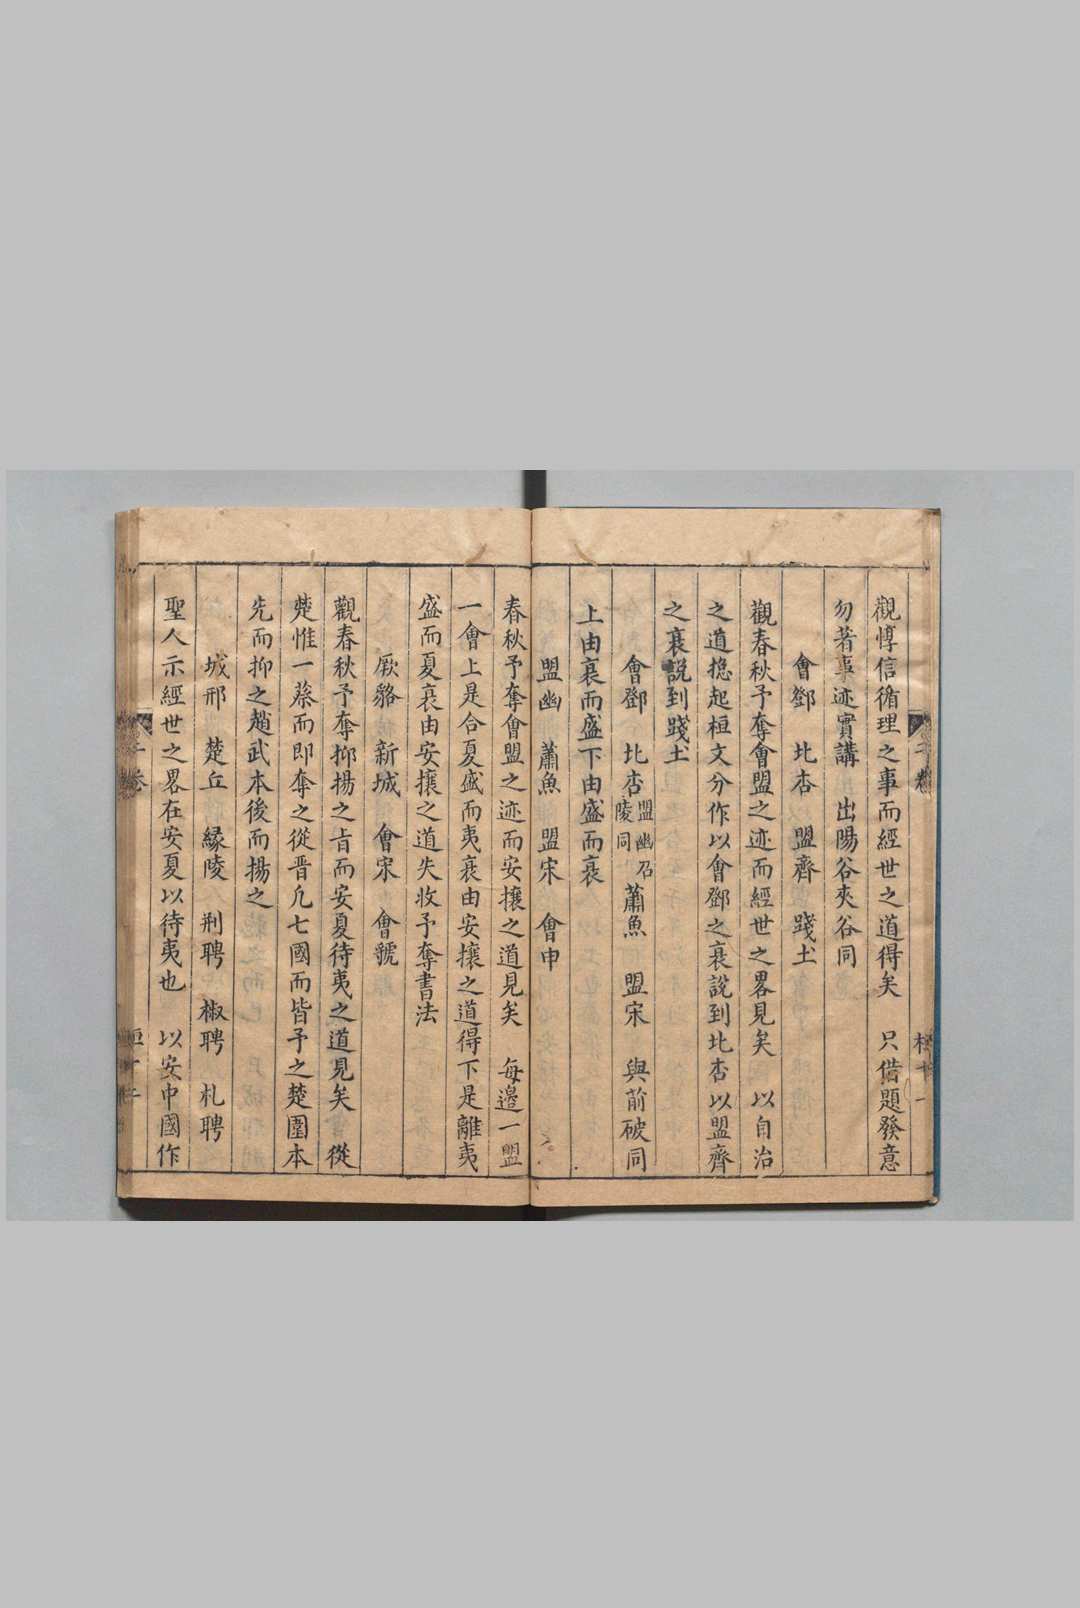 觀惇信循理之事而經世之道得矣　只借題發意
勿著事迹實講　出陽谷夾谷同
會鄧　北杏　盟齊　踐土
觀春秋予奪會盟之迹而經世之畧見矣　以自治
之道揔起桓文分作以會鄧之衰說到北杏以盟齊
之衰說到踐土
會鄧　北杏盟幽召陵同蕭魚　盟宋　與前破同
上由衰而盛下由盛而衰
盟幽　蕭魚　盟宋　會申
春秋予奪會盟之迹而安攘之道見矣　每邉一盟
一會上是合夏盛而夷衰由安攘之道得下是離夷
盛而夏衰由安攘之道失收予奪書法
厥貉　新城　會宋　會虢
觀春秋予奪抑揚之㫖而安夏待夷之道見矣　從
楚惟一蔡而即奪之從晋凢七國而皆予之楚圍本
先而抑之趙武本後而揚之
城邢　楚丘　緣陵　荆聘　椒聘　札聘
聖人示經世之畧在安夏以待夷也　以安中國作